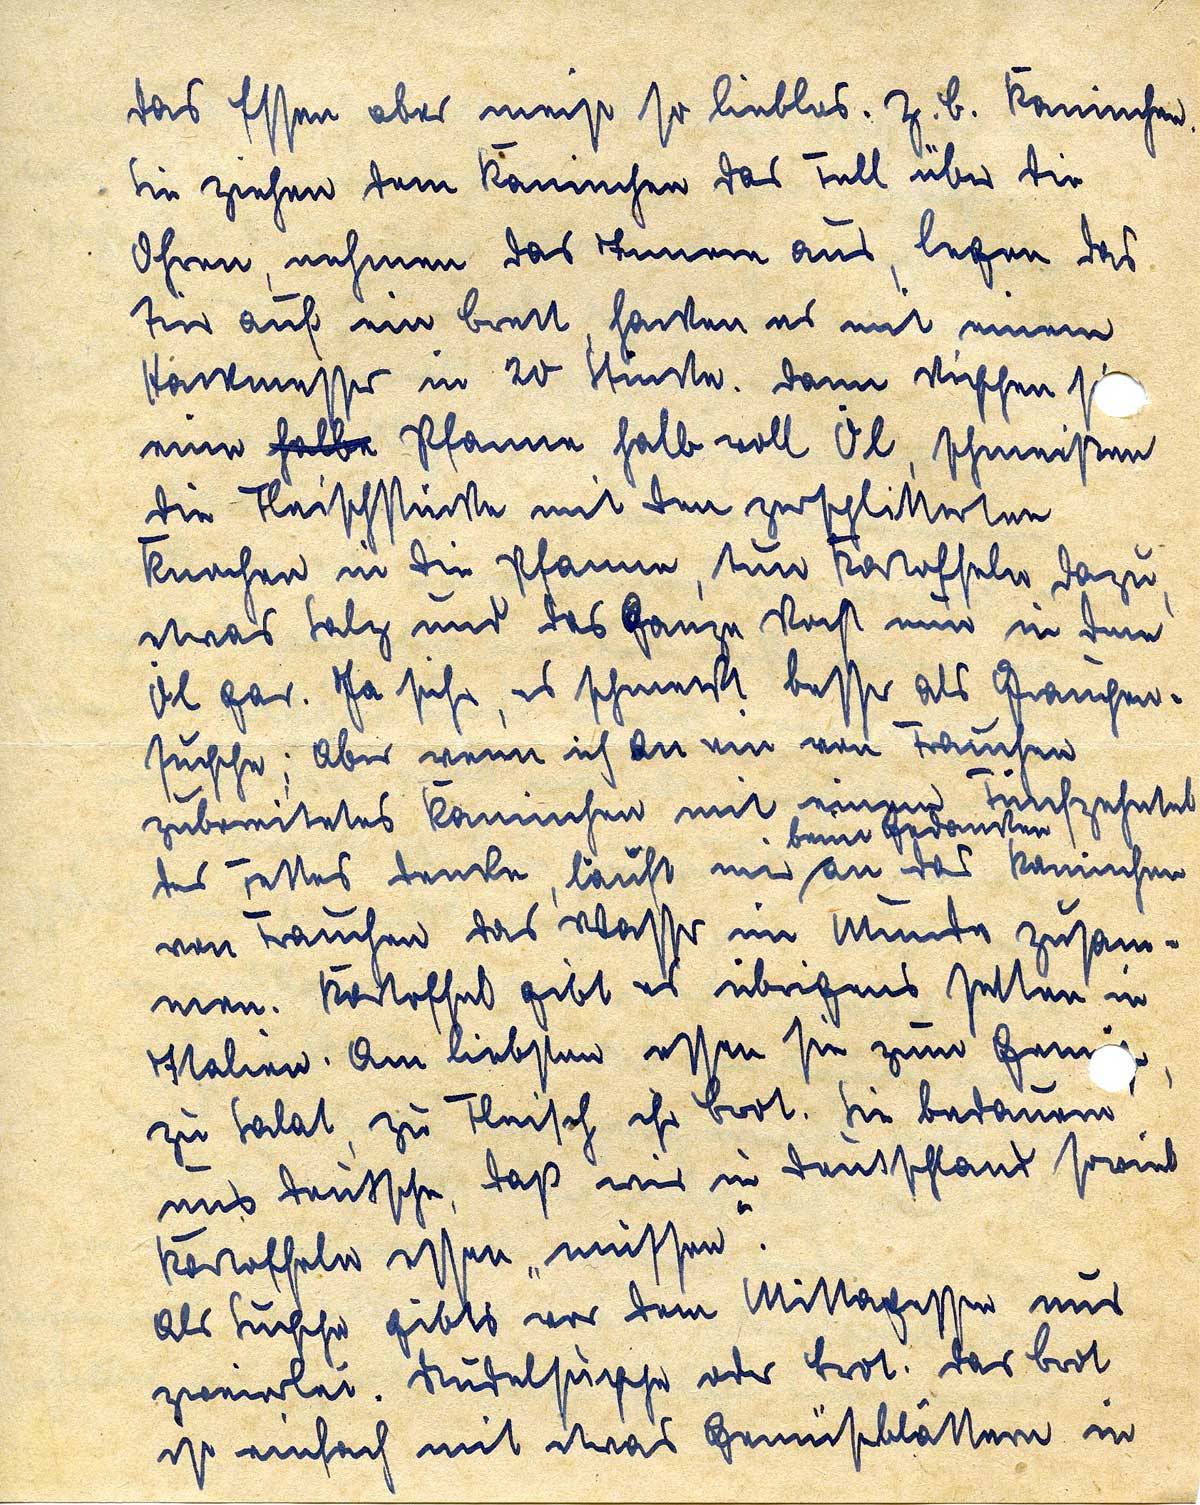 das Essen aber meist so lieblos. Z.b. Kaninchen.
Sie ziehen dem Kaninchen das Fell über die
Ohren, nehmen das Innere aus, legen das
Tier auf ein Brett, hacken es mit einem
Hackmesser in 20 Stücke. Dann kippen sie
eine halbe Pfanne halb voll Öl, schmeißen
die Fleischstücke mit den zersplitterten
Knochen in die Pfanne, tun Kartoffeln dazu,
etwas Salz und das Ganze kocht nun in dem
Öl gar. Ja sicher, es schmeckt besser als Graupen-
suppe; aber wenn ich an ein von Frauchen
zubereitetes Kaninchen mit einem Fünfzehntel
beim Gedanken
des Fettes denke, läuft mir an das Kaninchen
von Frauchen das Wasser im Munde zusam-
men. Kartoffel gibt es übrigens selten in
Italien. Am liebsten essen sie zum Gemüse,
zu Salat, zu Fleisch ihr Brot. Sie bedauern
uns Deutsche, daß wir in Deutschland soviel
Kartoffeln essen „müssen“.
Als Suppe gibts vor dem Mittagessen nur
zweierlei. Nudelsuppe oder Brot. Das Brot
ist einfach mit etwas Gemüseblättern in